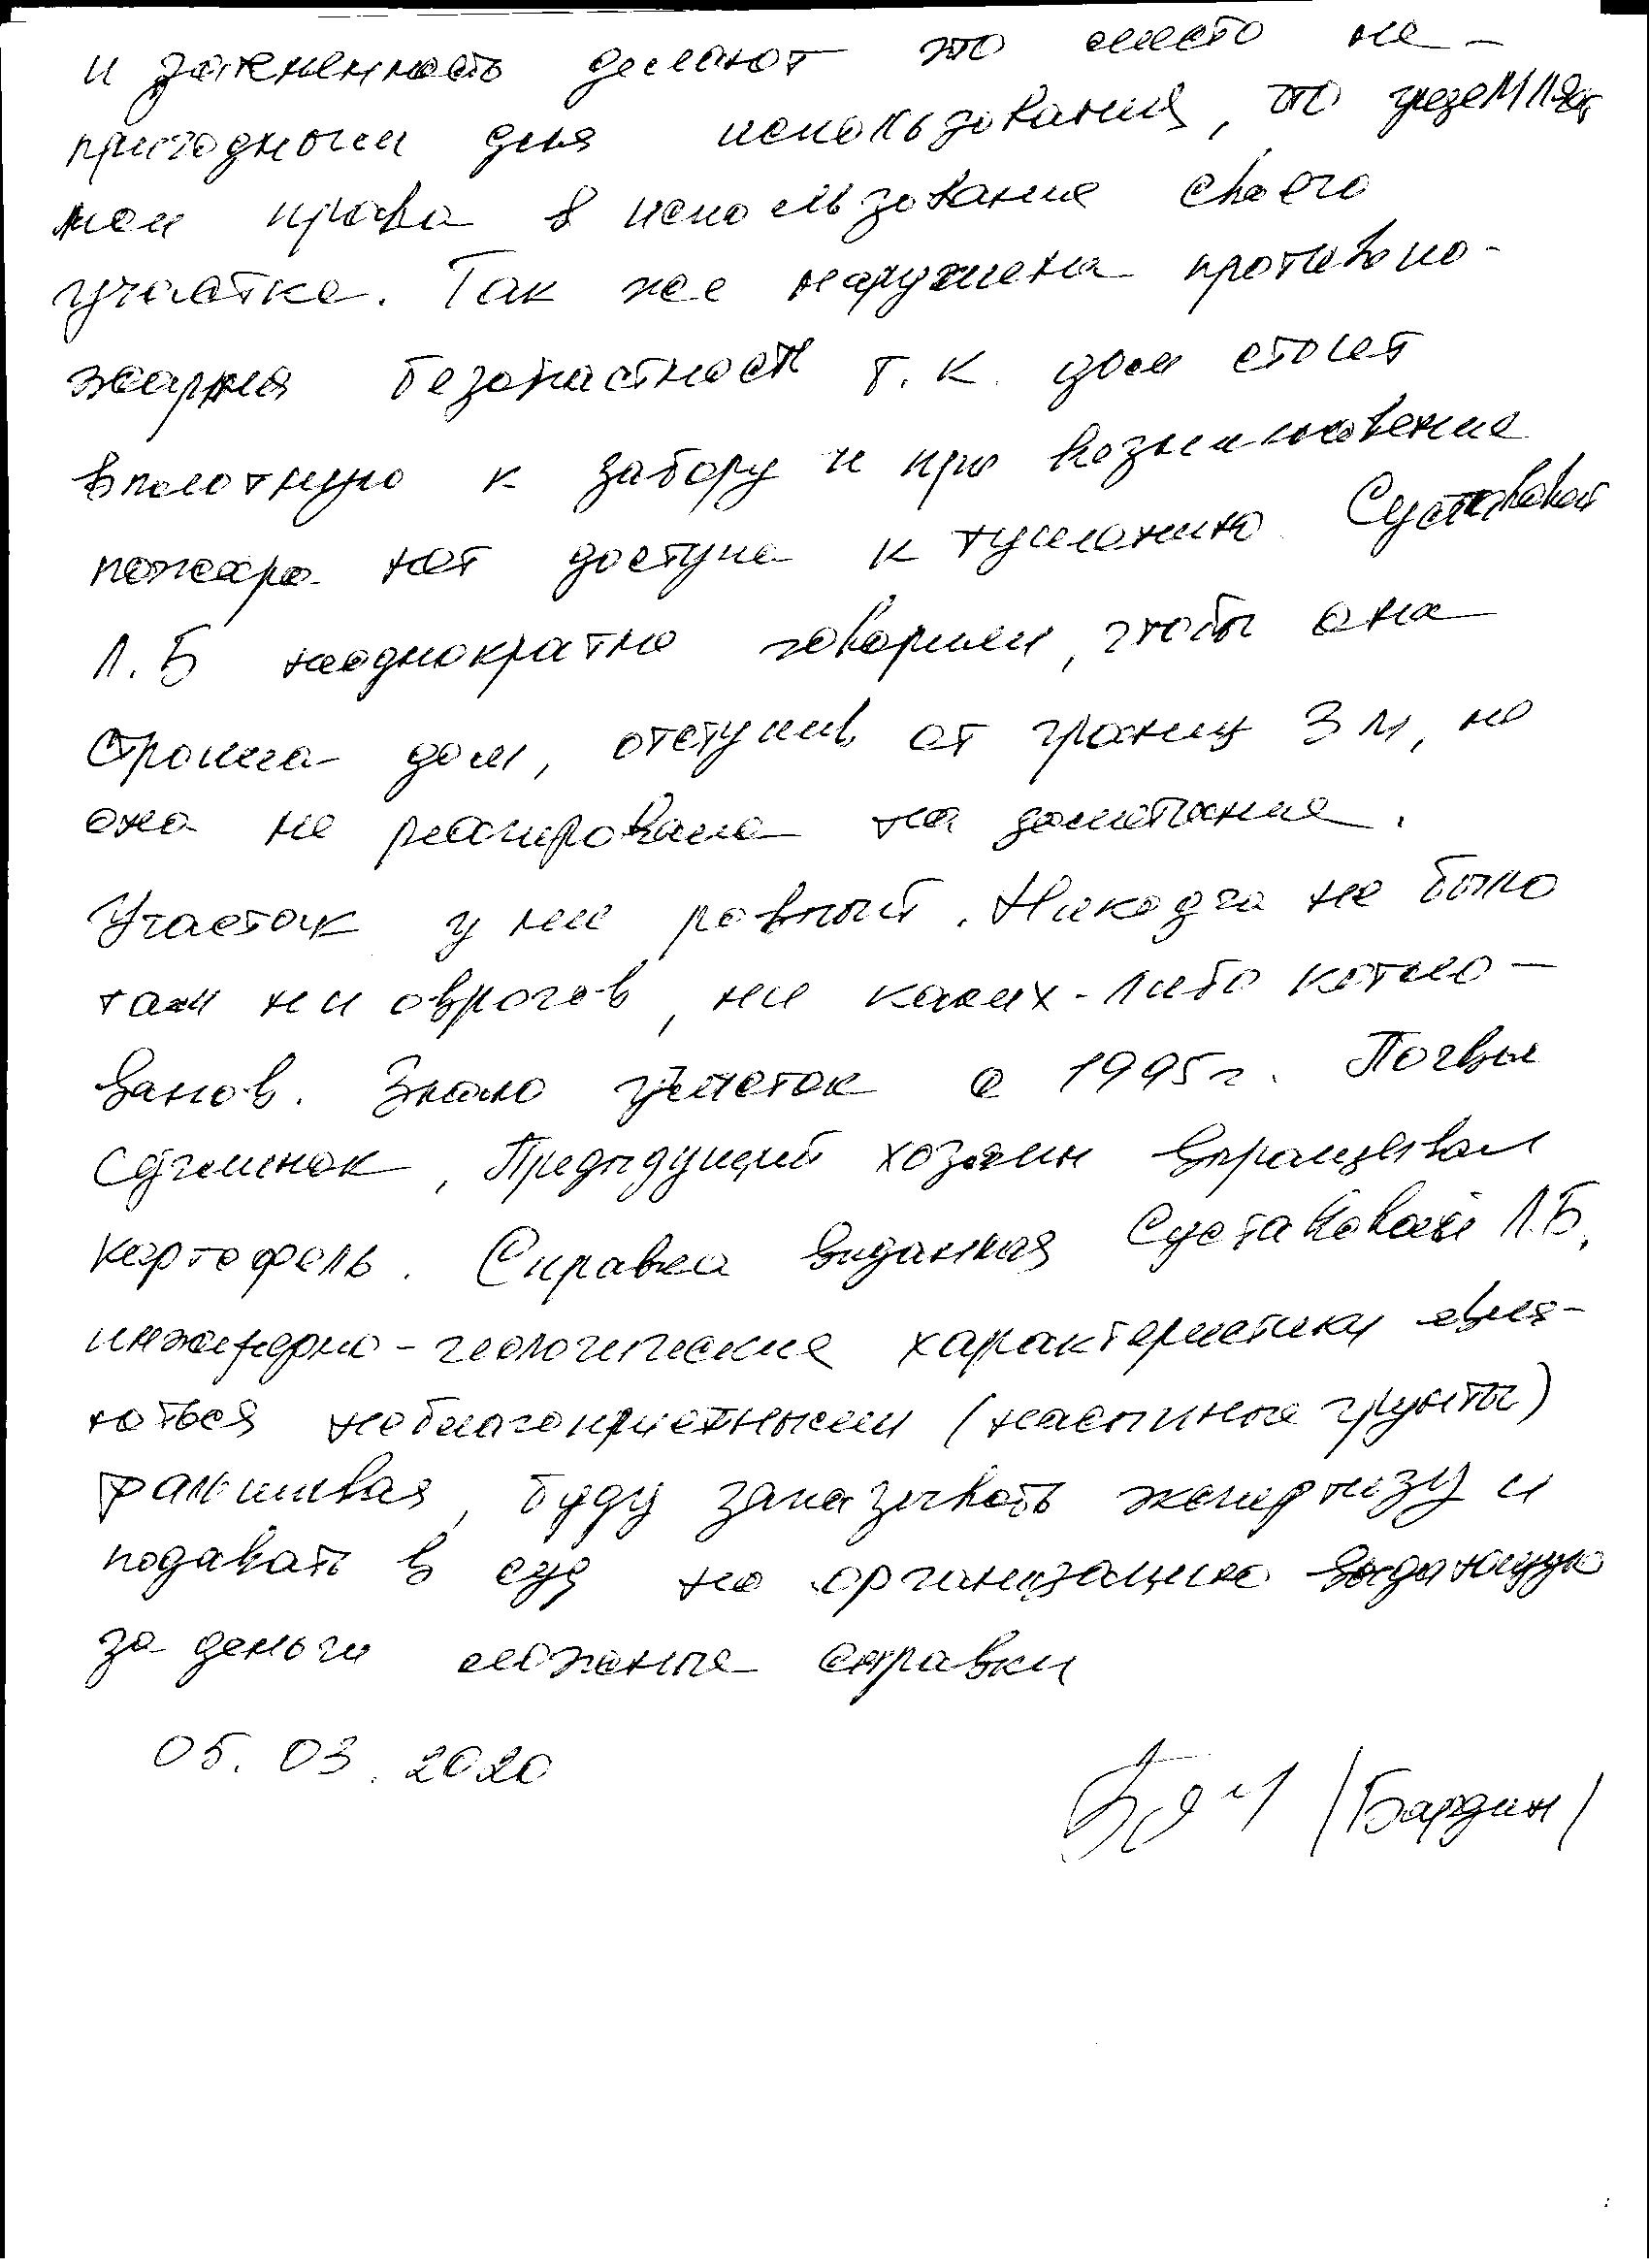 и затененность делают это место не-
пригодным для использования, это ущемляет
мои права в использование своего
участка. Так же нарушена противопо-
жарная безопастность т.к. дом стоит
вплотную к забору и при возникновение
пожара нет доступа к тушению. Сустаковой
Л.Б неоднократно говорили, чтобы она
строила дом, отступив от границ 3 м, но
она не реагировала на замечание.
Участок у нее ровный. Никогда не было
там ни оврагов, ни каких-либо котло-
ванов. Знаю участок с 1995г. Почвы
суглинок, Предыдущий хозяин выращивал
картофель. Справка выданная Сустаковой Л.Б,
инженерно-геологические характеристики явля-
ються неблагоприятными (насыпные грунты)
фальшивая, буду заказывать экспертизу и
подавать в суд на организацию выданную
за деньги ложные справки
05.03.2020
/Бардин/